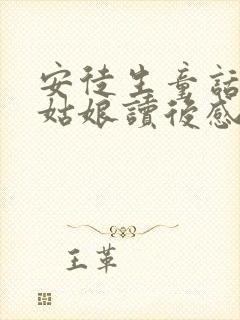 安徒生童話
姑娘讀後感
王革